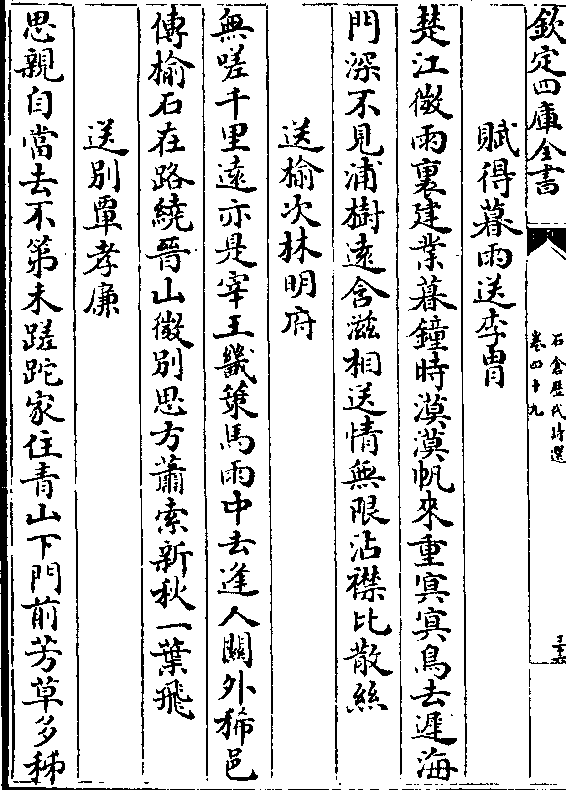 欽定四庫全書
石倉歷代詩選
卷四十九
賦得暮雨送李胄
楚江微雨裏建業暮鐘時漠漠帆來重冥冥鳥去遲海
門深不見浦樹遠含滋相送情無限沾襟比散絲
送榆次林明府
無嗟千里遠亦是宰王畿策馬雨中去逢人關外稀邑
傳榆石在路繞晉山微別思方蕭索新秋一葉飛
送別覃孝廉
思親自當去不第未蹉跎家住青山下門前芳草多秭